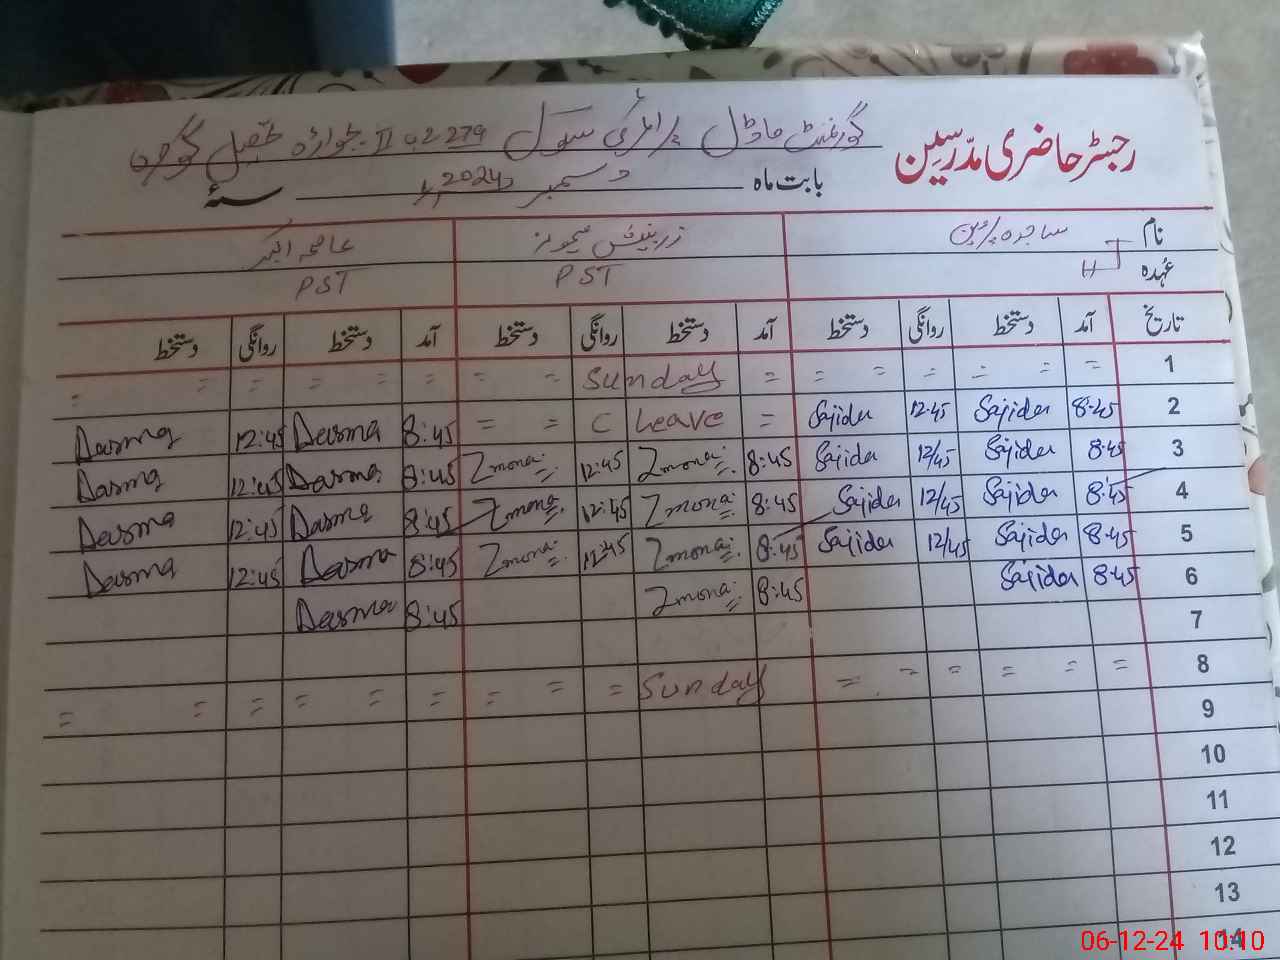 رجسٹر حاضری مدّرسین
گورنمنٹ ماڈل پرائمری سکول 279
بابت ماہ دسمبر 2024ء سنہٴ
نام ساجدہ پروین زرینیش میمونہ عاصمہ اکبر
عُہدہ HT PST PST
تاریخ آمد دستخط روانگی دستخط آمد دستخط روانگی دستخط آمد دستخط روانگی دستخط
1 = = = = = = Sunday = = = = = =
2 8:45 Sajida 12:45 Sajida = C Leave = = 8:45 Aasma 12:45 Aasma
3 8:45 Sajida 12/45 Sajida 8:45 Zmona 12:45 Zmona 8:45 Aasma 12:45 Aasma
4 8:45 Sajida 12/45 Sajida 8:45 Zmona 12:45 Zmona 8:45 Aasma 12:45 Aasma
5 8:45 Sajida 12/45 Sajida 8:45 Zmona 12:45 Zmona 8:45 Aasma 12:45 Aasma
6 8:45 Sajida 8:45 Zmona 8:45 Aasma
7
8 = = = = = = Sunday = = = = = = = =
9
10
11
12
13
14
06-12-24 10:10